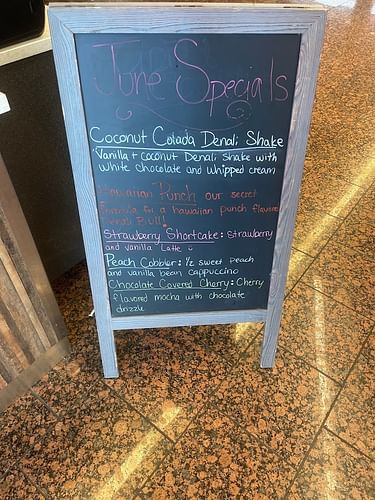 June Specials
Coconut Colada Denali Shake
Vanilla + coconut Denali shake with
white chocolate and whipped cream
Hawaiian Punch our secret
formula for a hawaiian punch flavored
Bull!
Strawberry Shortcake: Strawberry
and vanilla Latte
Peach Cobbler: 1/2 sweet peach
and vanilla bean cappuccino
Chocolate Covered Cherry: Cherry
flavored mocha with chocolate
drizzle